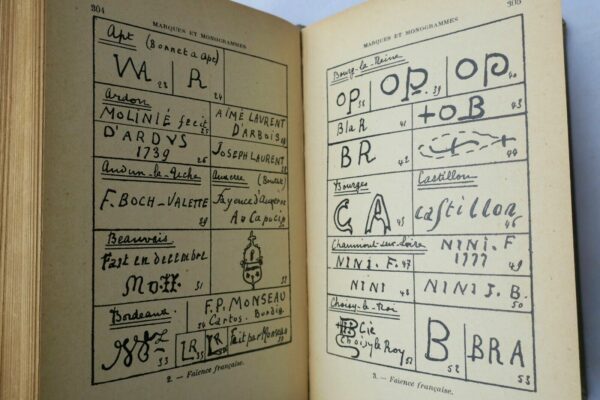 304
MARQUES ET MONOGRAMMES
Apt (Bonnet à Apt)
R
23
24
Ardon
MOLINIÉ fecit
D'ARDVS
1739
AIMÉ LAURENT
D'ARBOIS
JOSEPH LAURENT
25
26
F. BOCH-VALETTE
29
Auxerre (Boutet)
Fayence d'Auxerre
Au Capucin
Beauvais
Fast en decembre
31
32
Bordeaux
F.P. MONSEAU
34 Cartos. Burdig.
33
35
fait par Monseau
2. — Faïence française.
305
MARQUES ET MONOGRAMMES
Bourg-la-Reine
OP
38
OP
39
OP
40
Bla R
41
+OB
43
BR
42
44
Bourges
C A
45
Castillon
Castillon
46
Chaumont-sur-Loire
NINI. F. 47
NINI. F
1777
49
NINI
48
NINI J. B.
50
Choisy-le-Roi
& Cie
Choisy le Roy
51
B
52
BRA
53
3. — Faïence française.